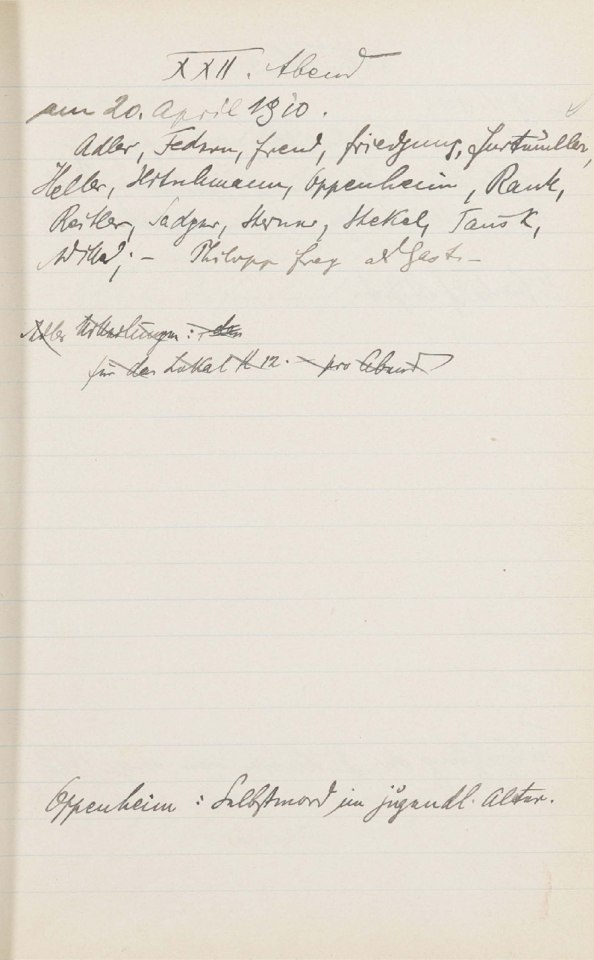 XXII. Abend
am 20. April 1910.
Adler, Federn, Freud, Friedjung, Furtmüller,
Heller, Hitschmann, Oppenheim, Rank,
Reitler, Sadger, Steiner, Stekel, Tausk,
Wittels; – Philipp Frey als Gast. –
Adler Mitteilungen: den
für das Lokal K 12. – pro Abend
Oppenheim: Selbstmord im jugendl. Alter.